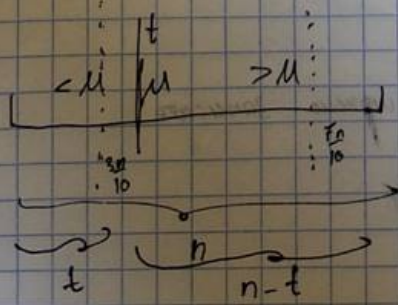 t
< M M > M
3n/10 7n/10
n
t n - t